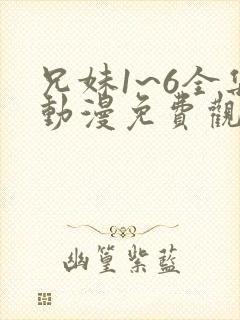 兄妹1~6全集
動漫免費觀
幽篁紫藍